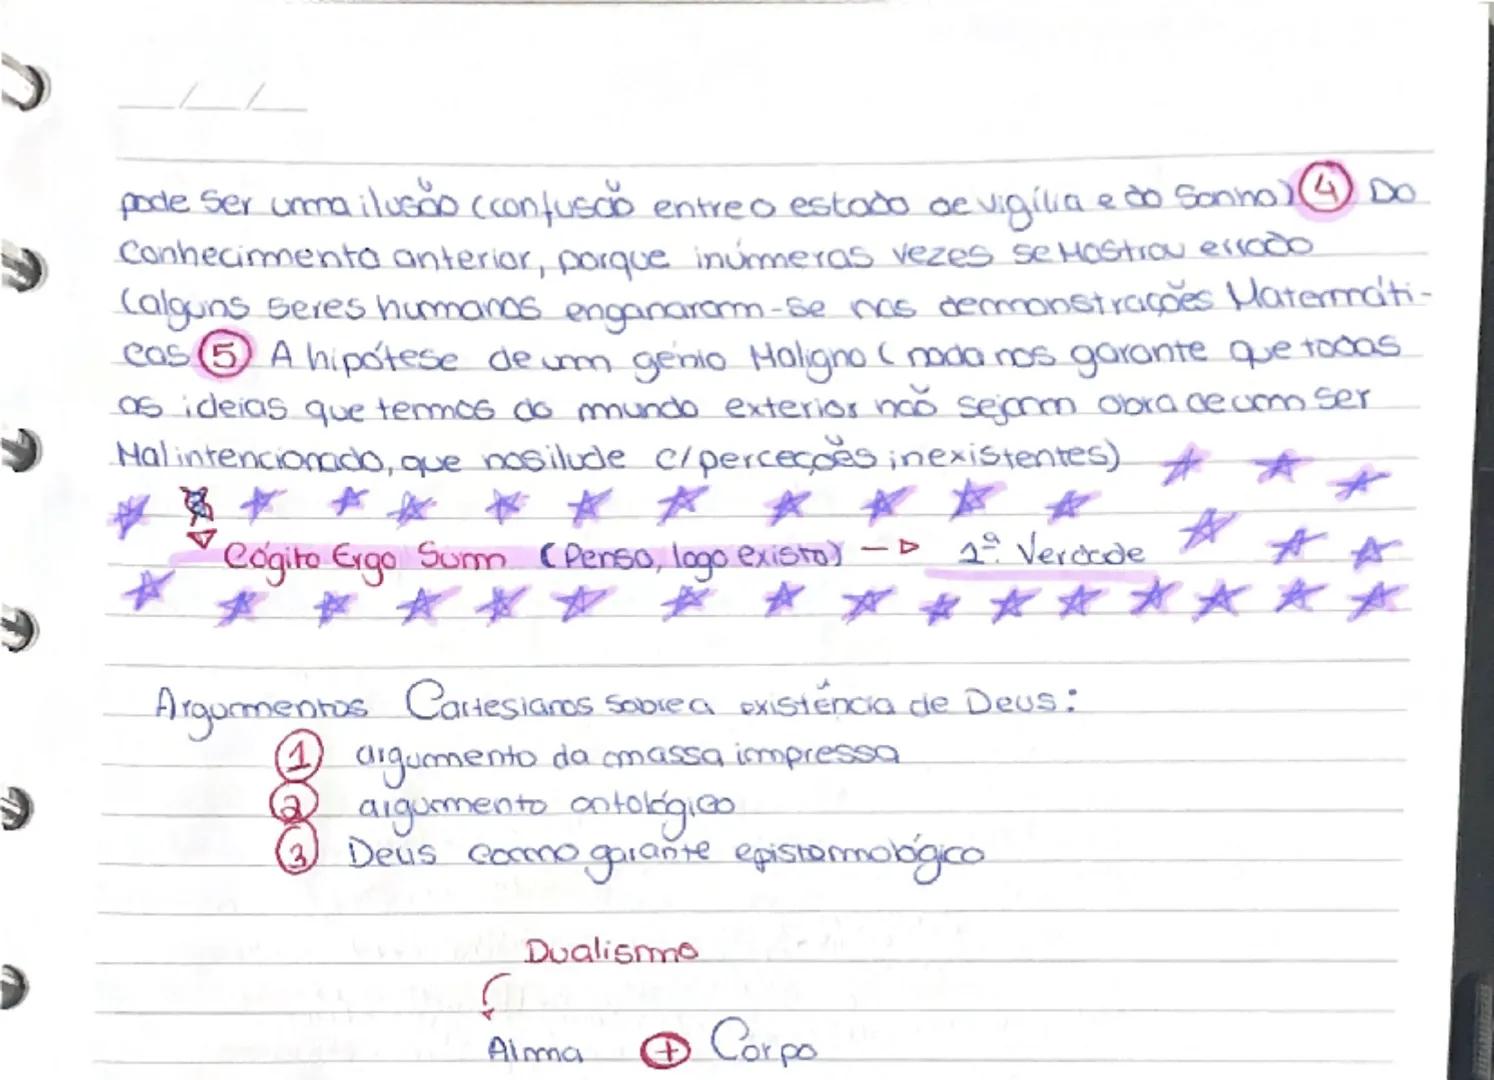 __/__/__
pode ser uma ilusão (confusão entre o estado de vigília e do Sonho) 4 Do
Conhecimento anterior, porque inúmeras vezes se Mostrou errado
(alguns seres humanos enganaram-se nas demonstrações Matemáti-
cas 5 A hipótese de um génio Maligno (nada nos garante que todas
as ideias que temos do mundo exterior não sejam obra de um ser
Mal intencionado, que nos ilude c/ perceções inexistentes)
Cógito Ergo Sum (Penso, logo existo) → 1ª Verdade
Argumentos Cartesianos sobre a existência de Deus:
1 argumento da massa impressa
2 argumento ontológico
3 Deus como garante epistomológico
Dualismo
Alma + Corpo